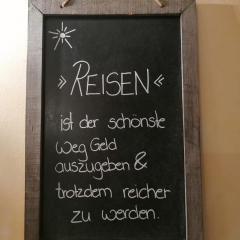 »REISEN«
ist der schönste
Weg Geld
auszugeben &
trotzdem reicher
zu werden.